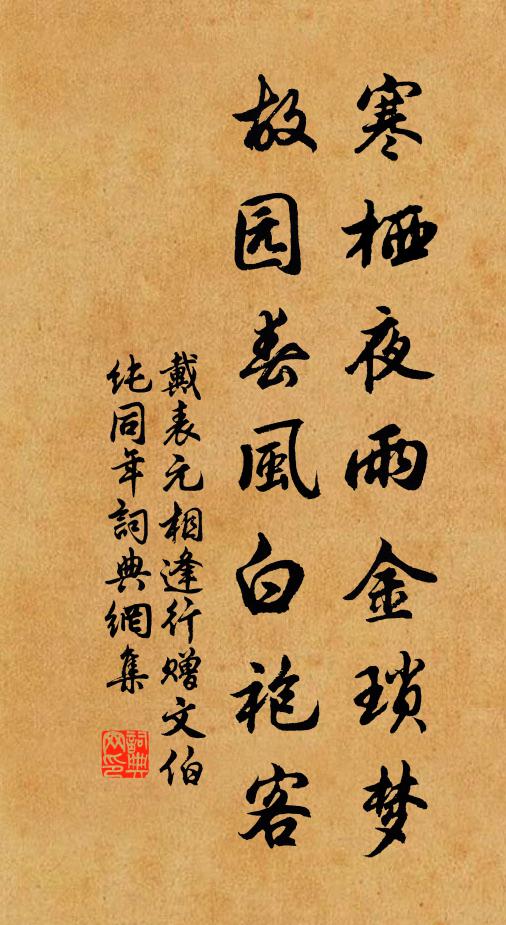 寒栖夜雨金琐梦
故园春風白袍客
戴表元相逢行赠文伯
纯同年詞典網集
詞典网印